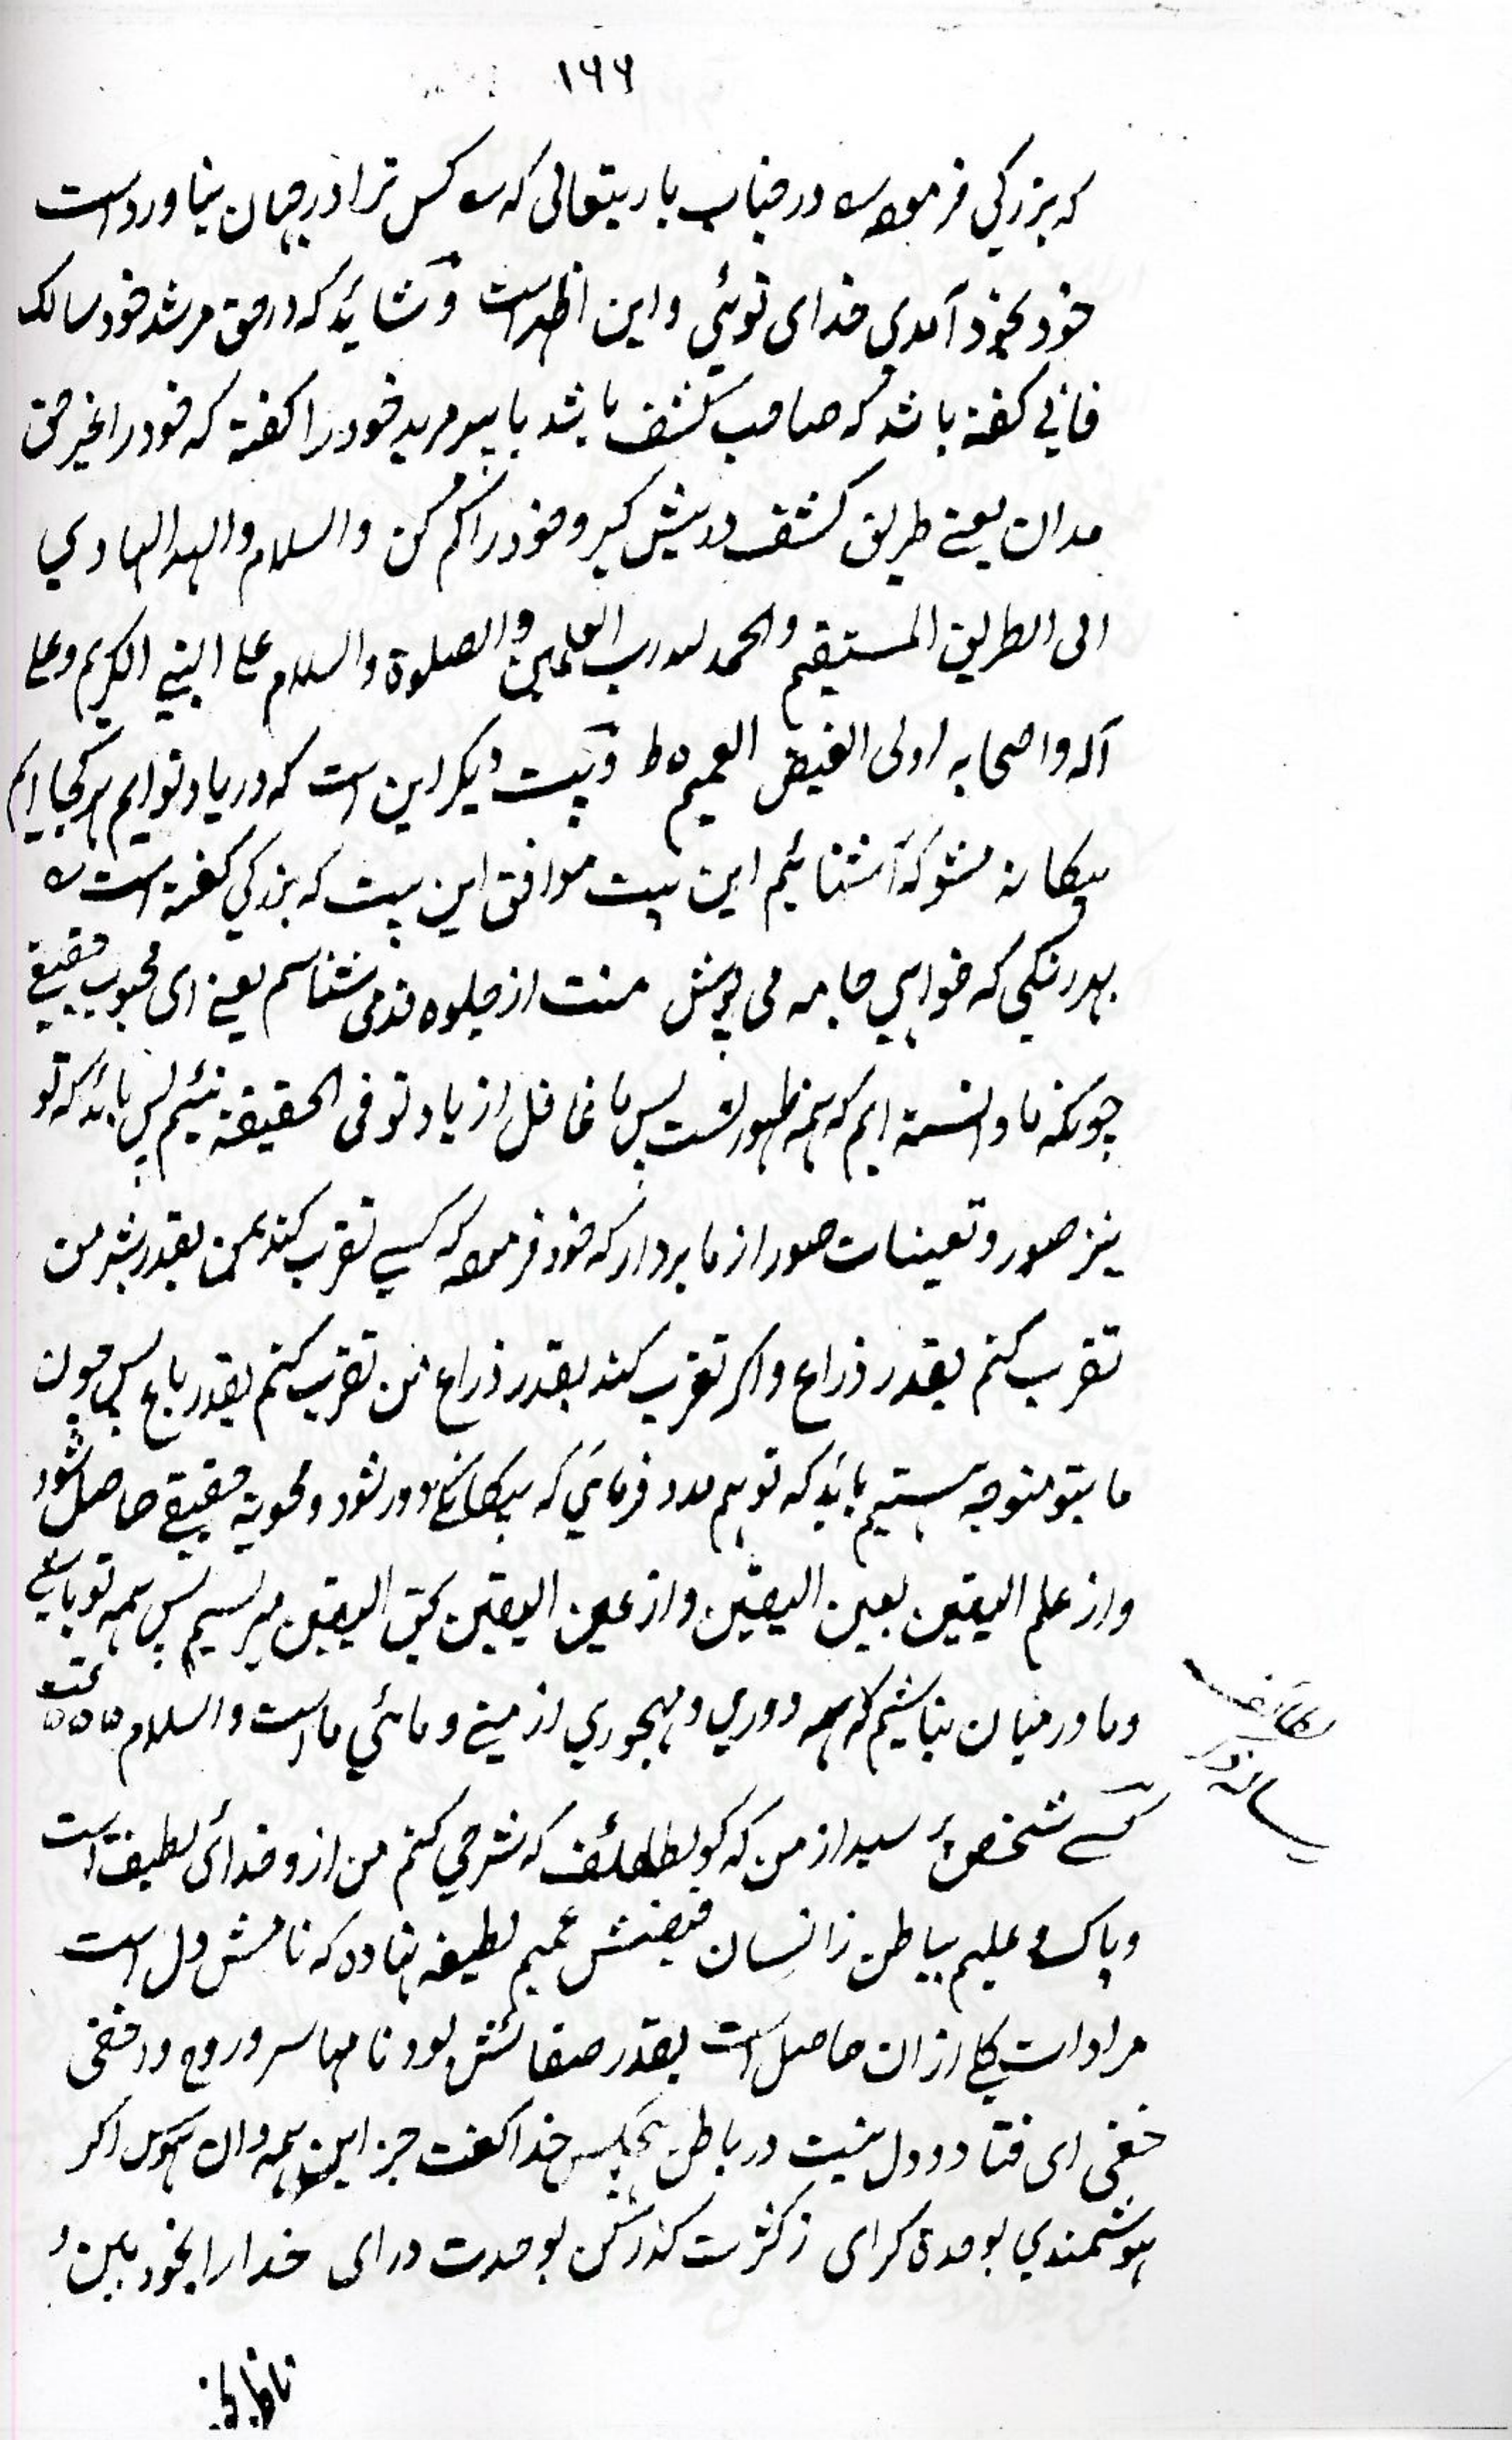 ۱۶۶
که بزرکی فرموده در جناب باریتعالی که سه کس ترا در جهان نیاورد است
خود بخود آمدی خدای توئی و این اظهر است و شاید که در حق مرشد خود سالک
فانی کفته باشد که صاحب کشف باشد یا پیر مرید خود را کفته که خود را غیر حق
مدان یعنے طریق کشف در پیش کیر و خود را کم کن والسلام والله الهادی
الی الطریق المستقیم والحمد لله رب العلمین والصلوة والسلام علے النبی الکریم وعلے
آله واصحابه اولی الفیض العمیم ه ط و بیت دیکر این است که در یاد توایم هر کجا ایم
بیکانه مشو که آشنائیم این بیت موافق این بیت که بزرکی کفته است سه
بهر رنکی که خواهی جامه می پوش منت از جلوه قد می شناسم یعنے ای محبوب حقیقے
چونکه ما دانسته ایم که همه ظهور تست پس ما غافل از یاد تو فی الحقیقة نئیم پس باید که تو
نیز صور و تعینات صور از ما بردار که خود فرموده که کسے تقرب کند بمن بقدر شبر من
تقرب کنم بقدر ذراع و اکر تقرب کند بقدر ذراع من تقرب کنم بقدر باع پس چون
ما بتو متوجه هستیم باید که تو هم مدد فرمای که بیکانکی دور شود و محویة حقیقے حاصل شود
و از علم الیقین بعین الیقین و از عین الیقین بحق الیقین میرسیم پس همه تو باشی
و ما در میان نباشیم که همه دوری و مهجوری از منے و مائی ما است والسلام ه ه ه تمت
رساله در لطائف
کسے شخص پرسید از من که کو لطائف که شرحی کنم من ازو خدای لطیف است
و پاک و علیم بباطن ز انسان فیضش عمیم لطیفه نهاده که نامش دل است
مرادات کلی ازان حاصل است بقدر صفائش بود نامها سر و روح و در خفی
خفی ای فتا دو دل نیست در باطن هیچکس خدا کفت جز این همه دان هوس اکر
هوشمندی بوحدة کرای ز کثرت کذر کن بوحدت درای خدا را بخود بین و